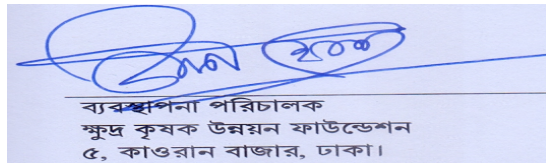 ব্যবস্থাপনা পরিচালক
ক্ষুদ্র কৃষক উন্নয়ন ফাউন্ডেশন
৫, কাওরান বাজার, ঢাকা।